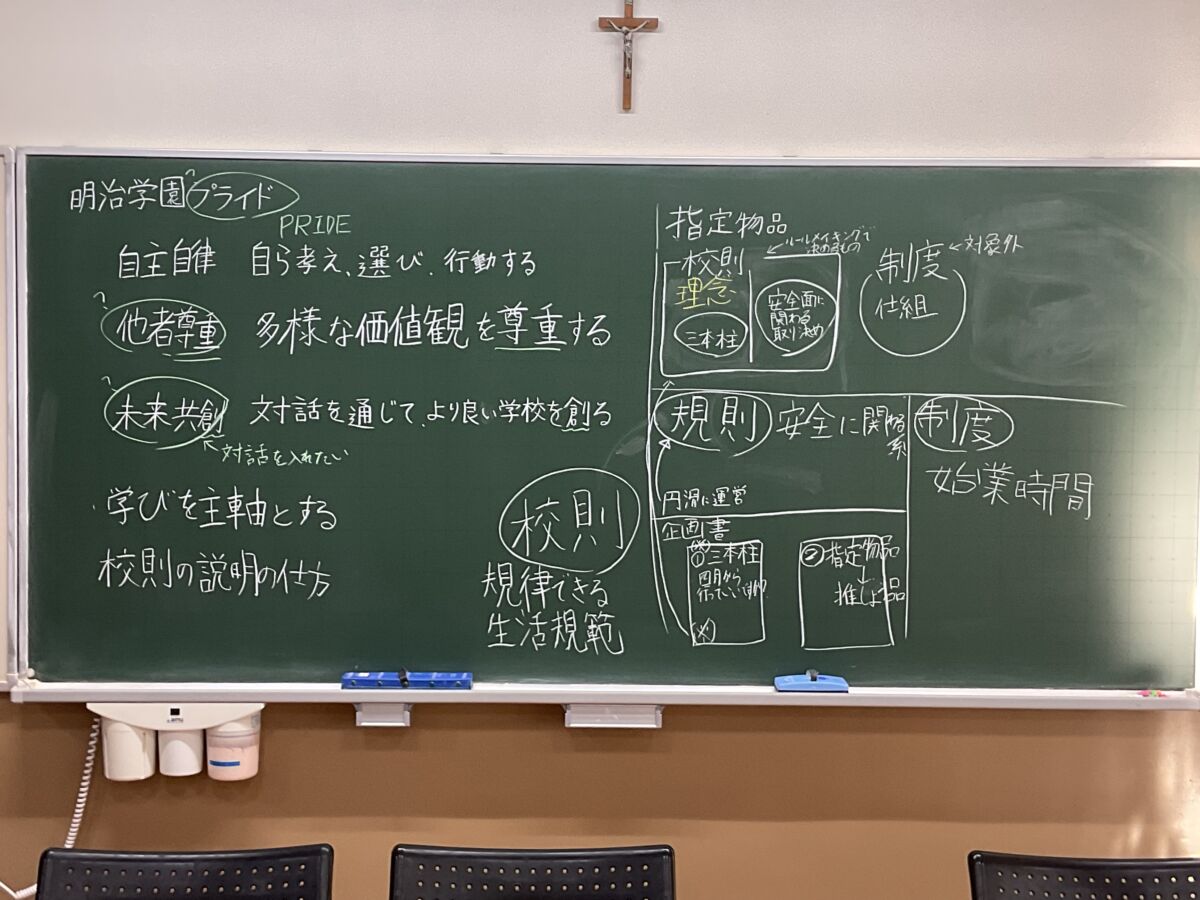 明治学園プライド
?
PRIDE
自主自律 自ら考え、選び、行動する
?
他者尊重 多様な価値観を尊重する
?
未来共創 対話を通じて、より良い学校を創る
対話を入れたい
・学びを主軸とする
校則の説明の仕方
校則
規律できる
生活規範
指定物品
校則
理念
三本柱
ルールメイキングで
決めるもの
安全面に
関わる
取り決め
制度
仕組
対象外
規則 安全に関係
系
円滑に運営
制度
始業時間
企画書
①三本柱
四月から
②指定物品
推しょう品